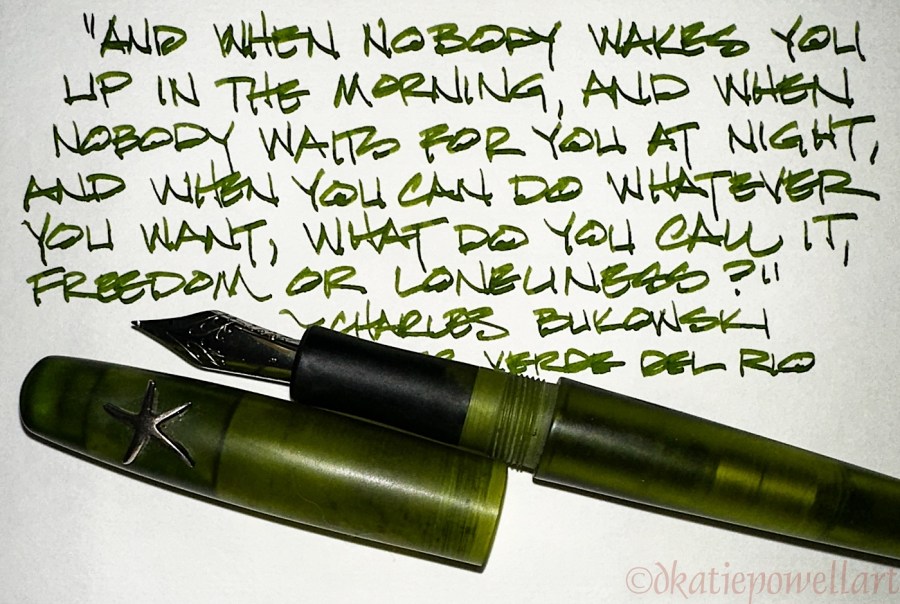 "AND WHEN NOBODY WAKES YOU
UP IN THE MORNING, AND WHEN
NOBODY WAITS FOR YOU AT NIGHT,
AND WHEN YOU CAN DO WHATEVER
YOU WANT, WHAT DO YOU CALL IT,
FREEDOM OR LONELINESS?"
~CHARLES BUKOWSKI
VERDE DEL RIO
©dkatiepowellart